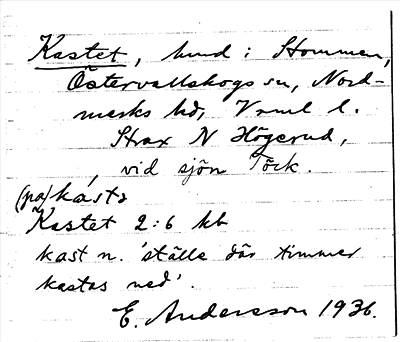 Kastet, hmd i Hommen,
Östervallskogs sn, Nord-
marks hd, Vrml l.
Strax N Högerud,
vid sjön Töck.
(på) kást
Kastet 2:6 kb
kast n. 'ställe där timmer
kastas ned'.
E. Andersson 1936.